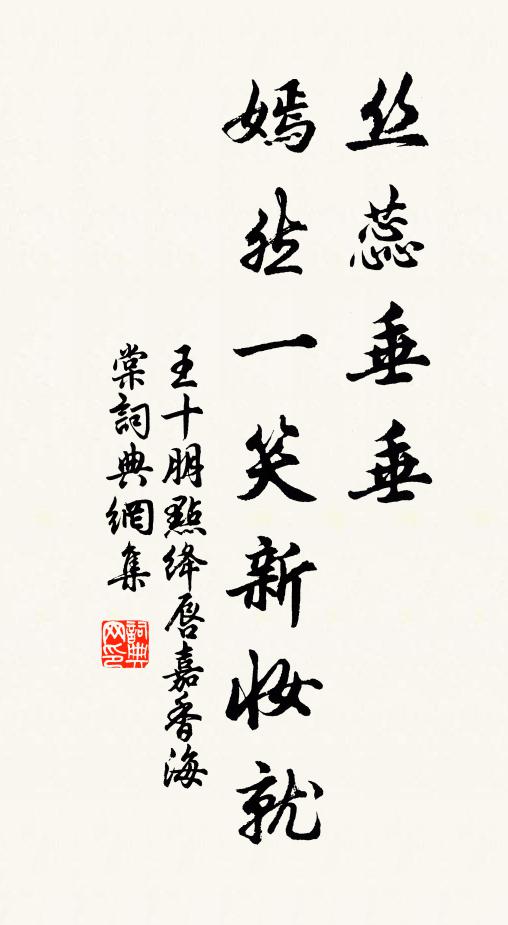 丝蕊垂垂
嫣然一笑新妆就
王十朋點绛唇嘉香海
棠詞典網集
詞典网印